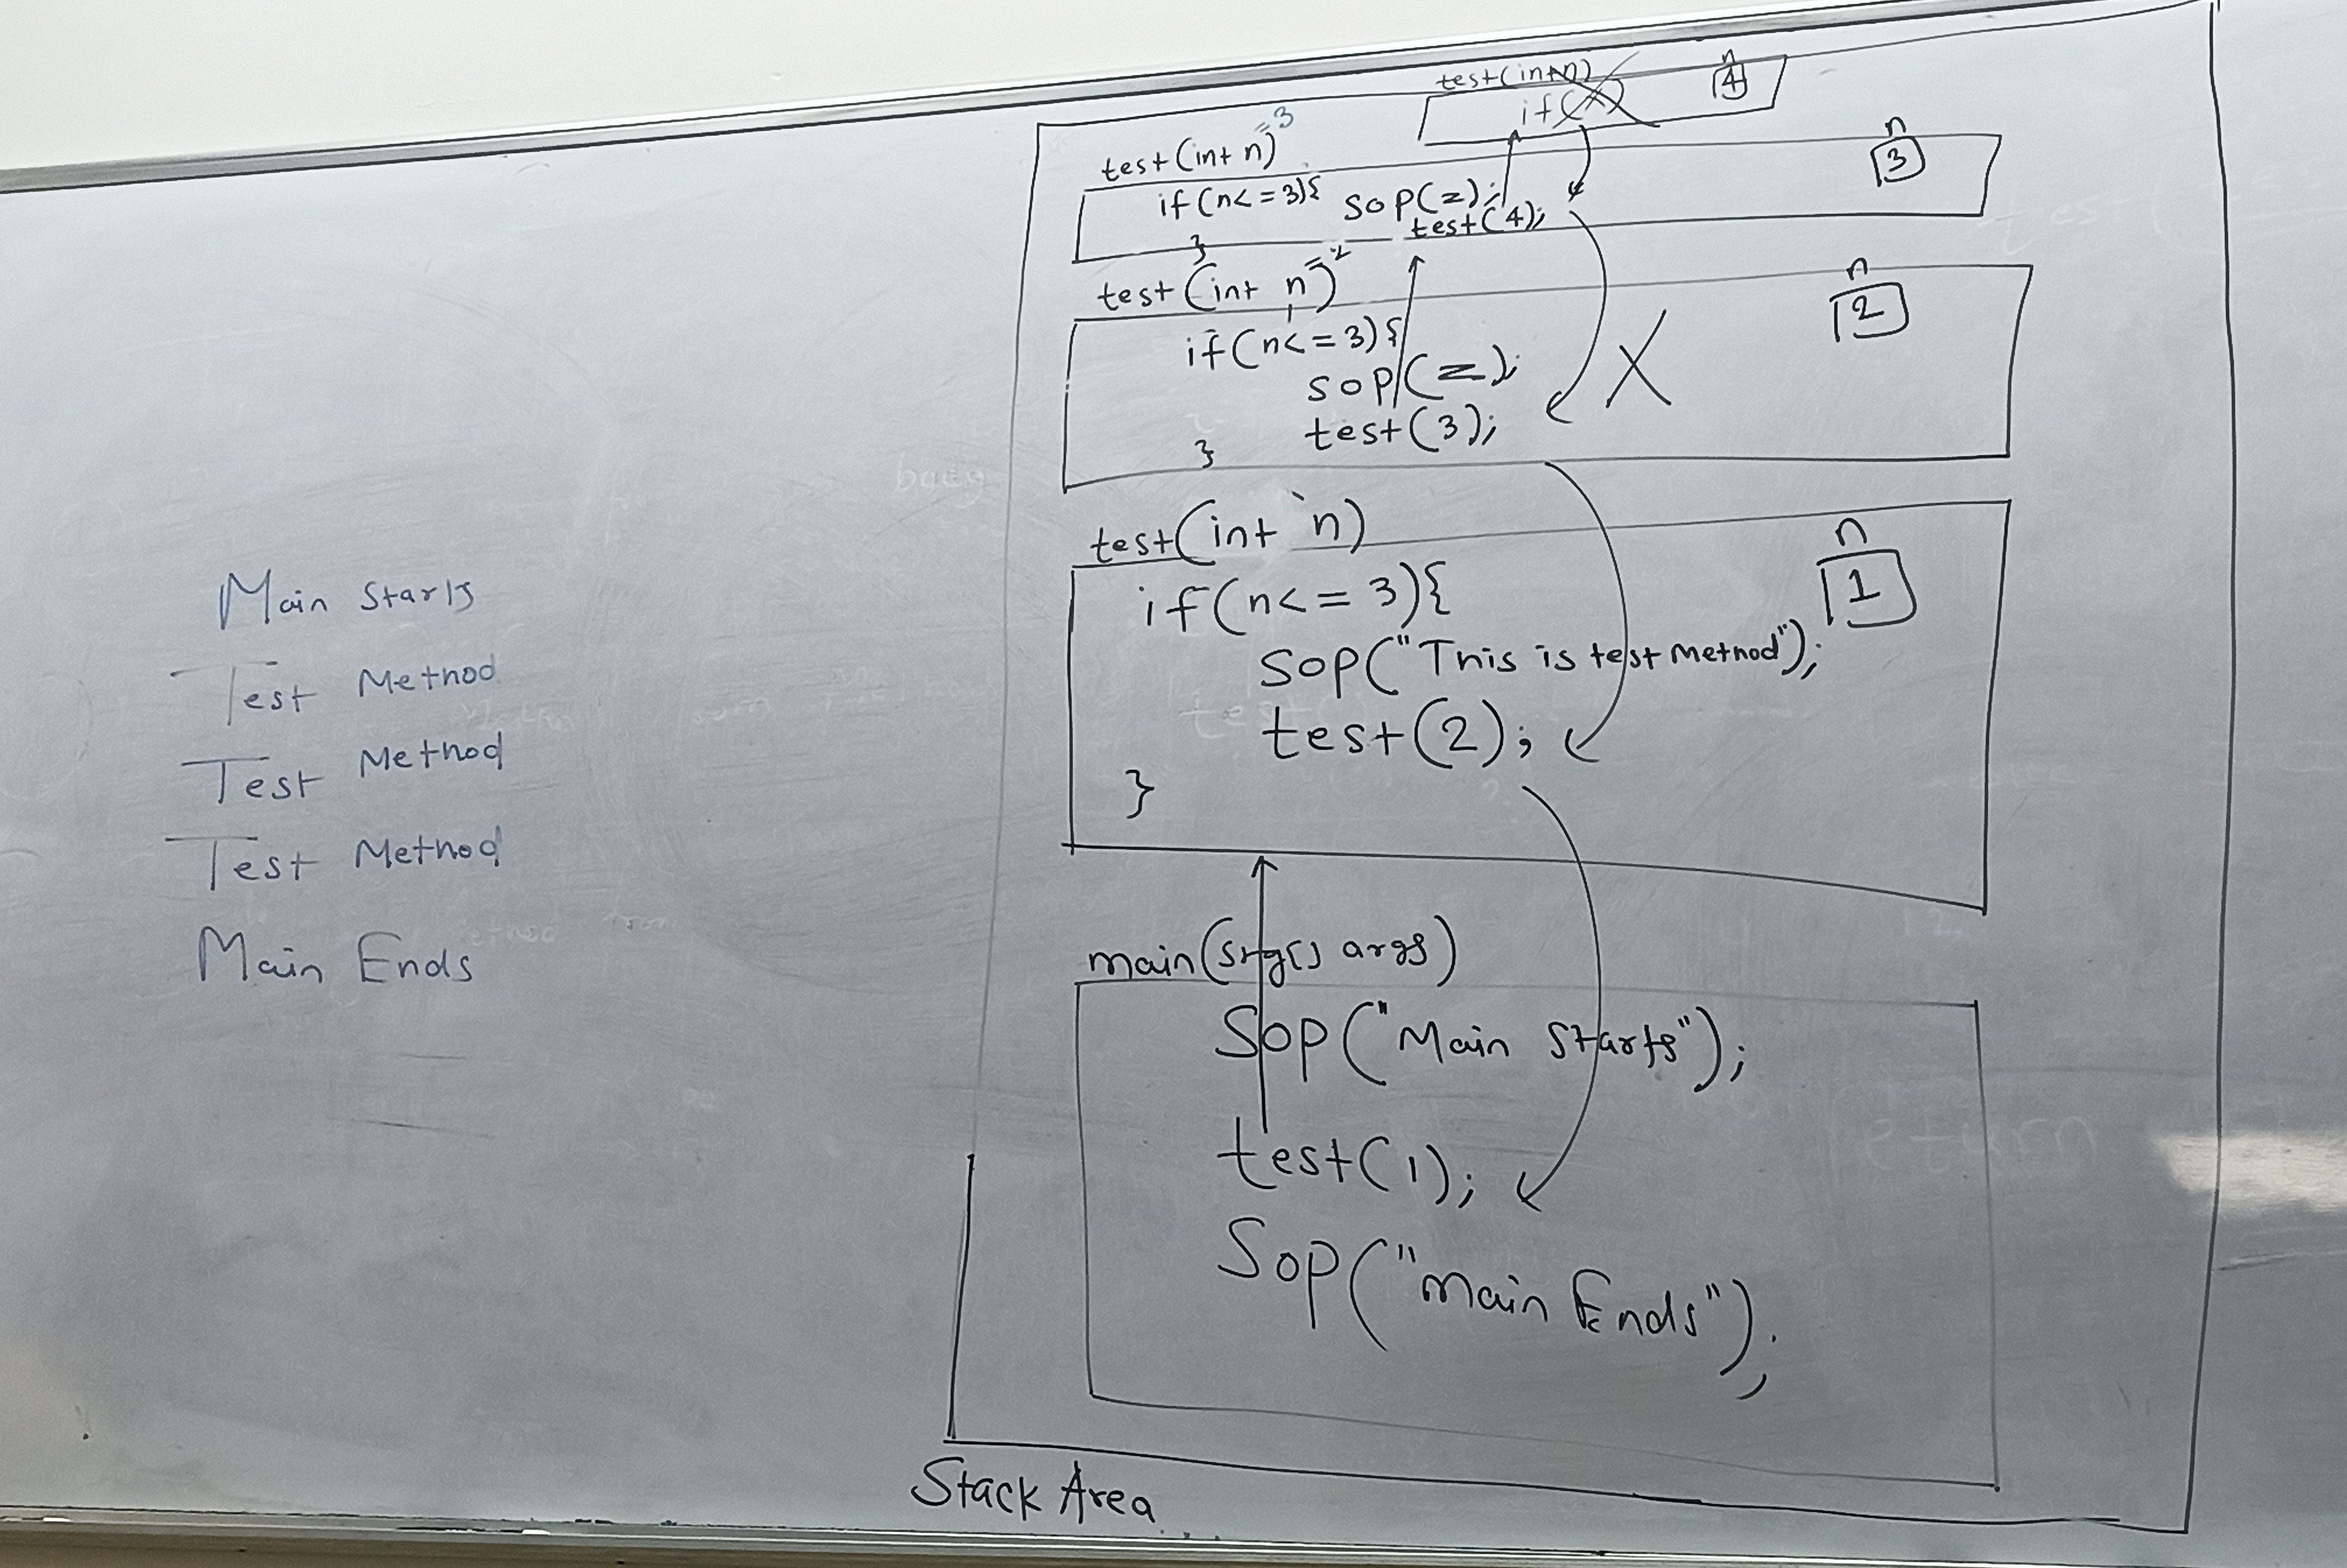 Main Starts
Test Method
Test Method
Test Method
Main Ends
test(int n)
n
4
if(
test(int n) =3
n
3
if(n<=3){ sop(=);
test(4);
}
test(int n) =2
n
2
if(n<=3){
sop(=);
test(3);
}
test(int n)
n
1
if(n<=3){
sop("This is test Method");
test(2);
}
main(Srg[] args)
Sop("Main Starts");
test(1);
Sop("Main Ends");
Stack Area